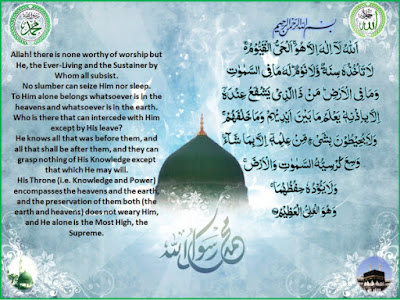 محمد
الله
بسم الله الرحمن الرحيم
Allah! there is none worthy of worship but
He, the Ever-Living and the Sustainer by
Whom all subsist.
No slumber can seize Him nor sleep.
To Him alone belongs whatsoever is in the
heavens and whatsoever is in the earth.
Who is there that can intercede with Him
except by His leave?
He knows all that was before them, and
all that shall be after them, and they can
grasp nothing of His Knowledge except
that which He may will.
His Throne (i.e. Knowledge and Power)
encompasses the heavens and the earth,
and the preservation of them both (the
earth and heavens) does not weary Him,
and He alone is the Most High, the
Supreme.
اَللّٰهُ لَآ اِلٰهَ اِلَّا هُوَ الْحَىُّ الْقَيُّوْمُ
لَا تَاْخُذُهٗ سِنَةٌ وَّلَا نَوْمٌ لَهٗ مَا فِى السَّمٰوٰتِ
وَمَا فِى الْاَرْضِ مَنْ ذَا الَّذِىْ يَشْفَعُ عِنْدَهٗ
اِلَّا بِاِذْنِهٖ يَعْلَمُ مَا بَيْنَ اَيْدِيْهِمْ وَمَا خَلْفَهُمْ
وَلَا يُحِيْطُوْنَ بِشَىْءٍ مِّنْ عِلْمِهٖ اِلَّا بِمَا شَآءَ
وَسِعَ كُرْسِيُّهُ السَّمٰوٰتِ وَالْاَرْضَ
وَلَا يَئُوْدُهٗ حِفْظُهُمَا
وَهُوَ الْعَلِىُّ الْعَظِيْمُ
محمد رسول الله